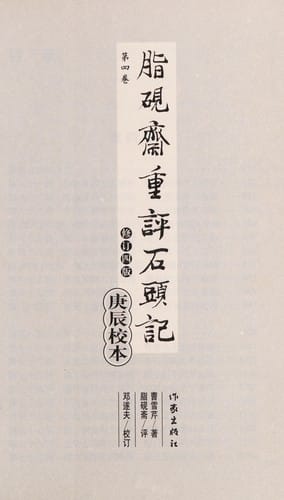 脂硯齋重評石頭記
第四卷
修订四版
庚辰校本
曹雪芹/著
脂砚斋/评
邓遂夫/校订
作家出版社